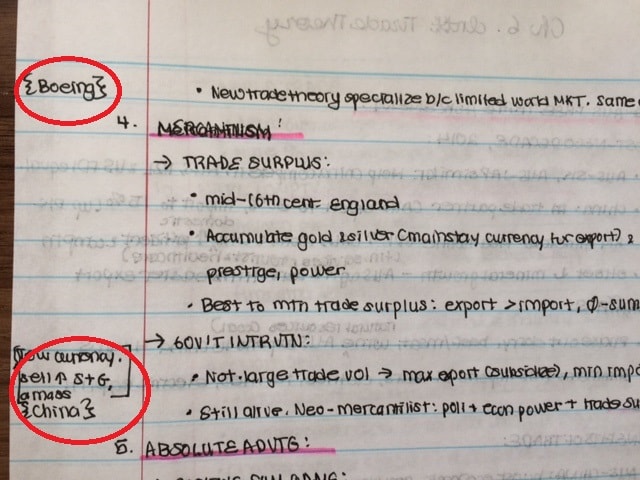 {Boeing}
• New trade theory specialize b/c limited world MKT. same
4. MERCANTILISM:
→ TRADE SURPLUS:
• mid-16th cent. england
• Accumulate gold & silver (mainstay currency for export) &
prestige, power
• Best to mtn trade surplus: export > import, 0-sum
→ GOV'T INTRVTN:
• Not. large trade vol → max export (subsidies), min impo
• Still alive. Neo-mercantilist: poli + econ power + trade su
low currency.
sell ↑ S+G,
amass
{China}
5. ABSOLUTE ADVTG: